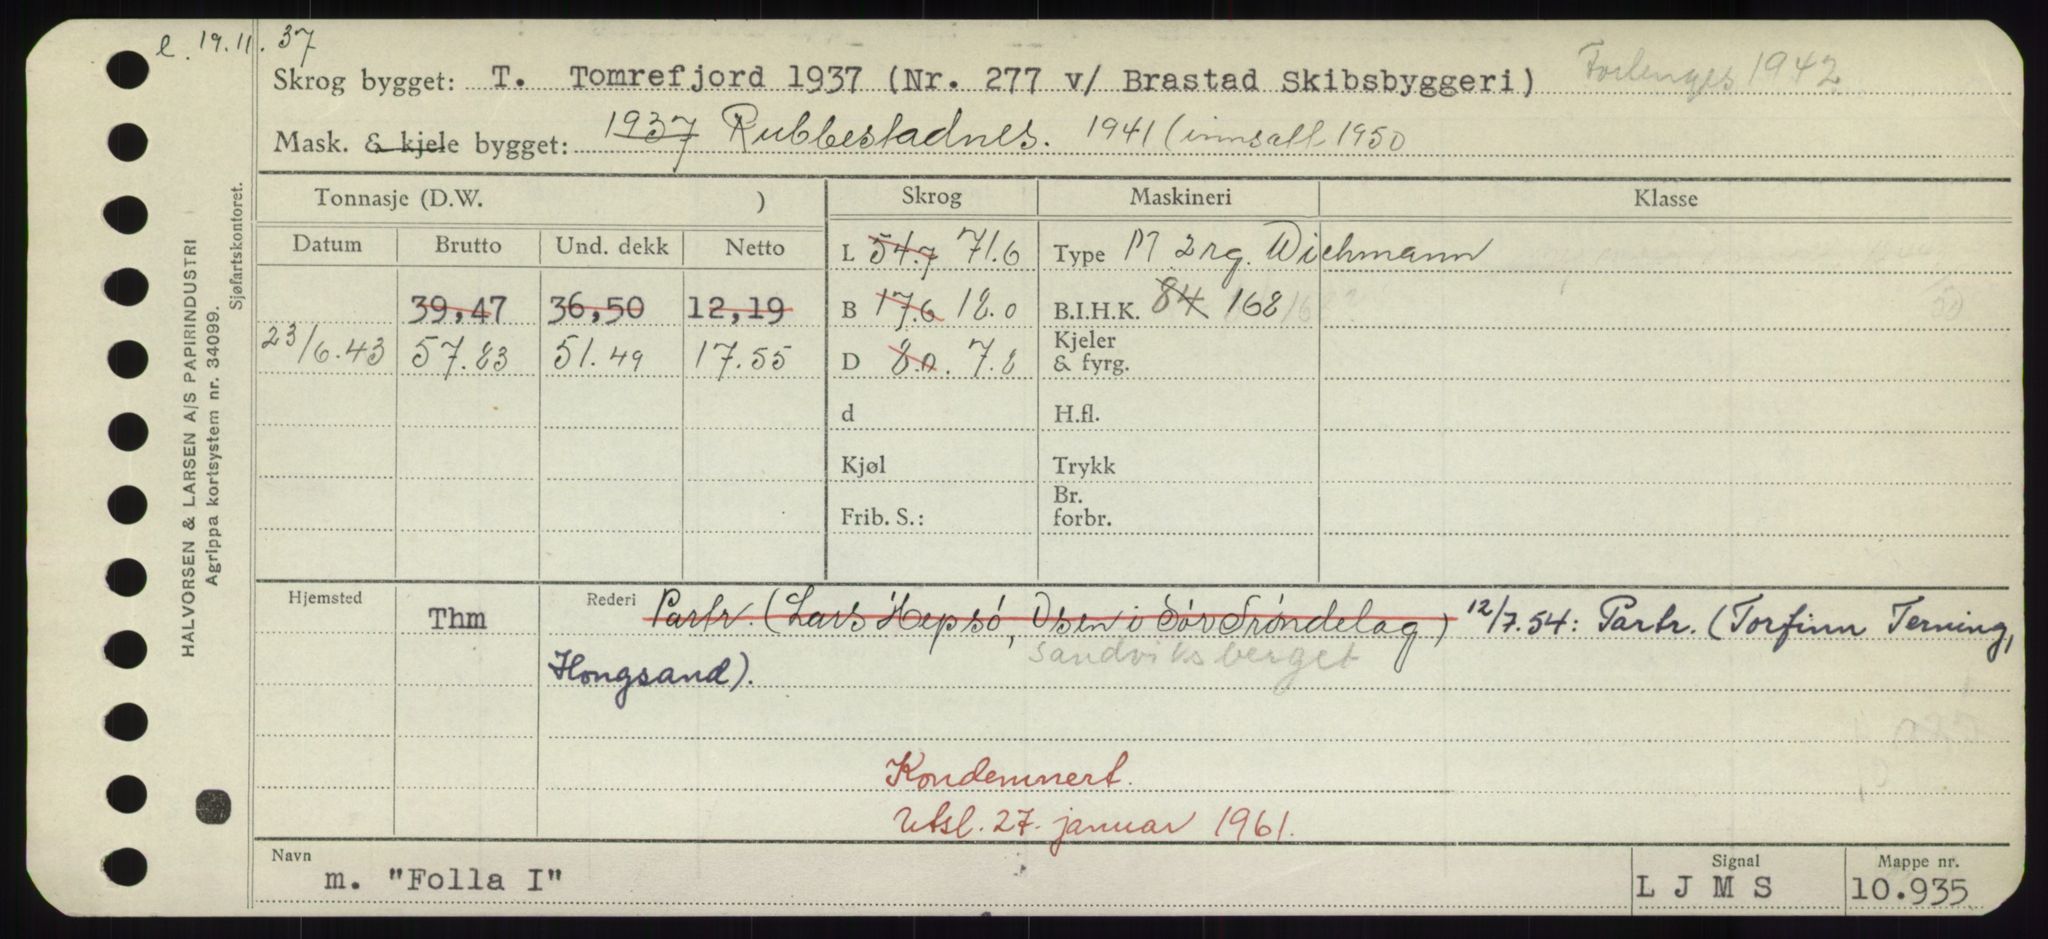 l. 19.11.37
Skrog bygget: T. Tomrefjord 1937 (Nr. 277 v/ Brastad Skibsbyggeri) Forlenges 1942
Mask. & kjele bygget: 1937 Rubbestadnes. 1941 (innsatt 1950
HALVORSEN & LARSEN A/S PAPIRINDUSTRI
Agrippa kortsystem nr. 34099.
Sjøfartskontoret.
Tonnasje (D.W. ) Skrog Maskineri Klasse
Datum Brutto Und. dekk Netto L 54.7 71.6 Type M 2 rg. Wichmann
39,47 36,50 12,19 B 17.6 18.0 B.I.H.K. 84 168
23/6.43 57.83 51.49 17.55 D 8.0. 7.8 Kjeler & fyrg.
d H.fl.
Kjøl Trykk
Frib. S.: Br. forbr.
Hjemsted Thm Rederi Partr. (Lars Hepsø, Osen i Sør Trøndelag) 12/7.54: Partr. (Torfinn Terning,
Hongsand). Sandviksberget
Kondemnert.
Utsl. 27. januar 1961.
Navn Signal Mappe nr.
m. "Folla I" L J M S 10.935